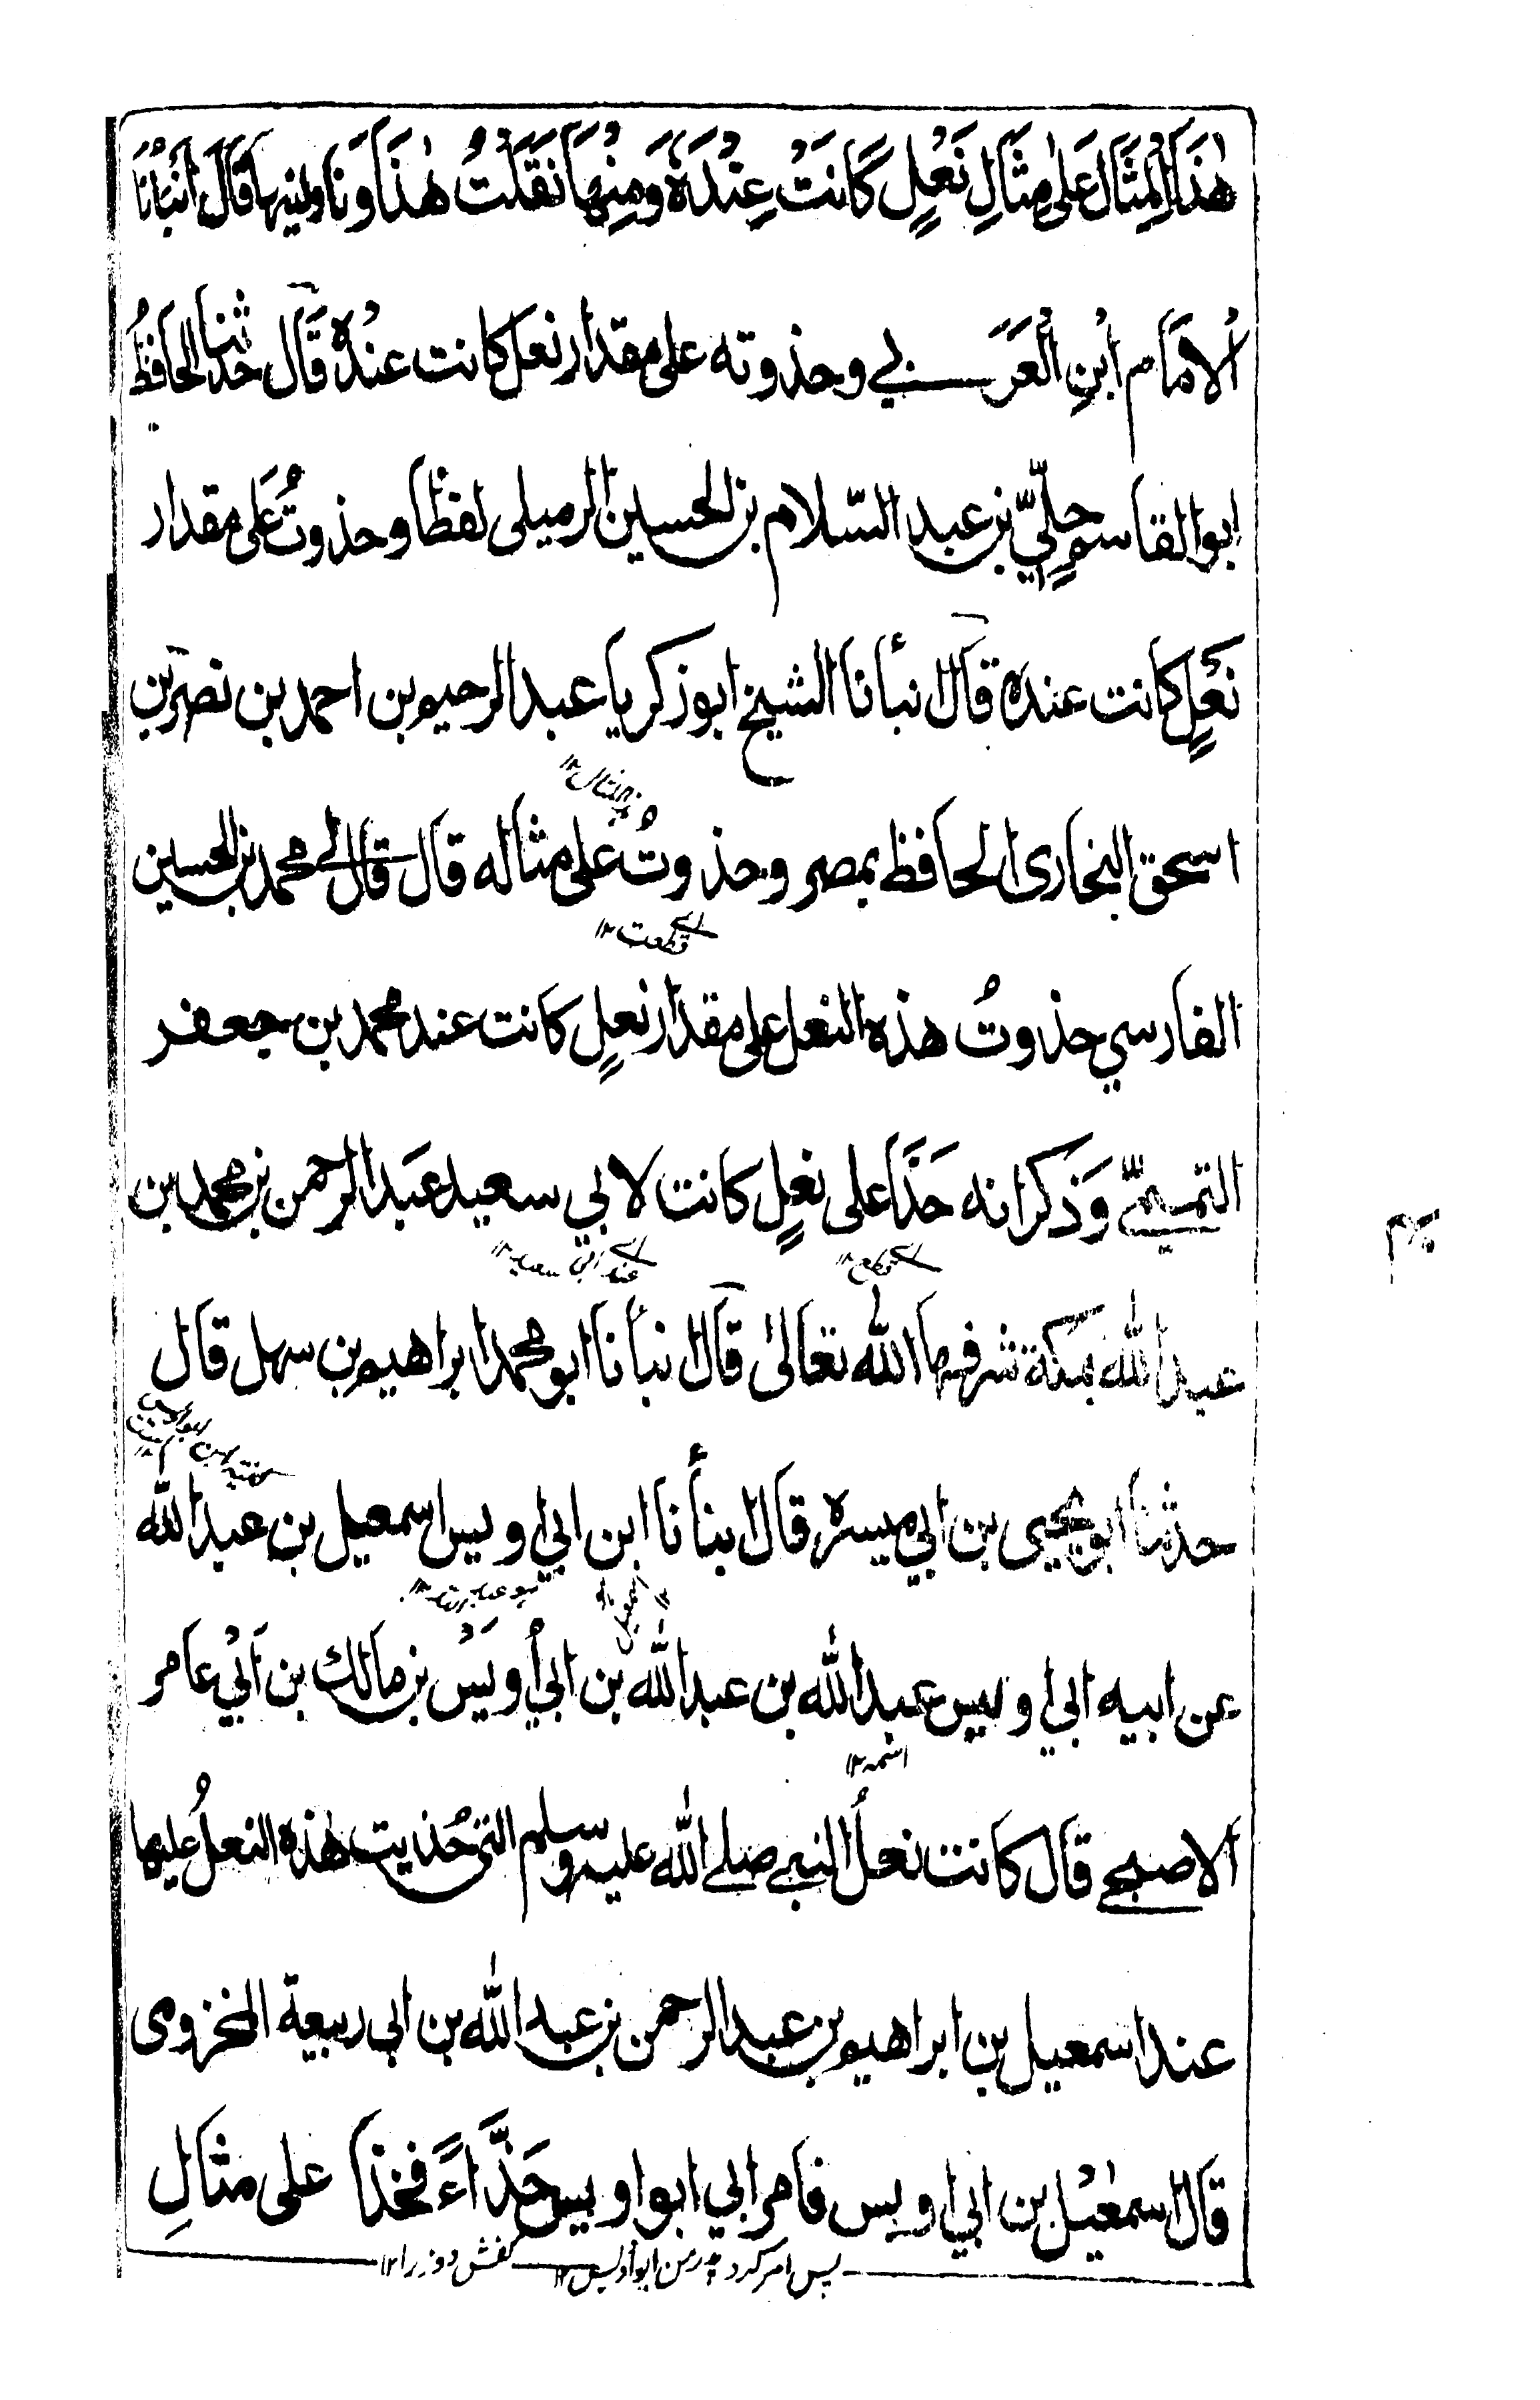 هٰذَا الْمِثَالَ عَلیٰ مِثَالِ نَعْلٍ كَانَتْ عِنْدَهٗ وَمِنْهَا نَقَلْتُ هٰذَا وَناولنيها قَالَ اَنْبَاَنَا
اُلامَام اُبْنِ الْعَرَبي وحذوته علی مقدار نعل كانت عنْدهٗ قَال حدثنا الحَافِظُ
ابو القاسم حلِيّ بن عبد السّلام بن الحسين الرميلی لفظًا وحذوتُ عَلی مقدار
نَعْلٍ كانت عنده قَال انبأنا الشيخ ابوزكريا عبد الرحيم بن احمد بن نصر بن
اسحق البخاری الحافظ بمصر وحذوتُ علی مثاله قال قال لي محمد بن الحسين
مثال١٢
اے قطعت١٢
الفارسي حذوتُ هذه النعل علی مقدار نعلٍ كانت عند محمد بن جعفر
التميميّ وَذكر انه حَذَا علی نعلٍ كانت لابي سعيد عَبد الرحمن بن محمد بن
اے قطع١٢
اے عند ابی سعيد١٢
عبد الله بمكة شرفها الله تعالیٰ قَال انبأنا ابو محمد ابراهيم بن سهل قال
حدثنا ابو يحيی بن ابي ميسره قال انبأنا ابن ابي اويس اسمعيل بن عبد الله
عن ابيه ابي اويس عبد الله بن عبد الله بن ابي اُويَسْ بن مالك بن اَبيْ عامر
اسمه١٢
الاصبحي قال كانت نعلُ النبي صلے الله عليه وسلم التی حُذيت هٰذه النعلُ عليها
عند اسمعيل بن ابراهيم بن عبد الرحمن بن عبد الله بن ابی ربيعة المخزومی
قال اسمعيل بن ابي اويس فامر ابي ابو اويس حَذَّاءً فحذا علی مثالِ
پس امر كرد پدر من ابو اويس١٢ كفش دوز را١٢